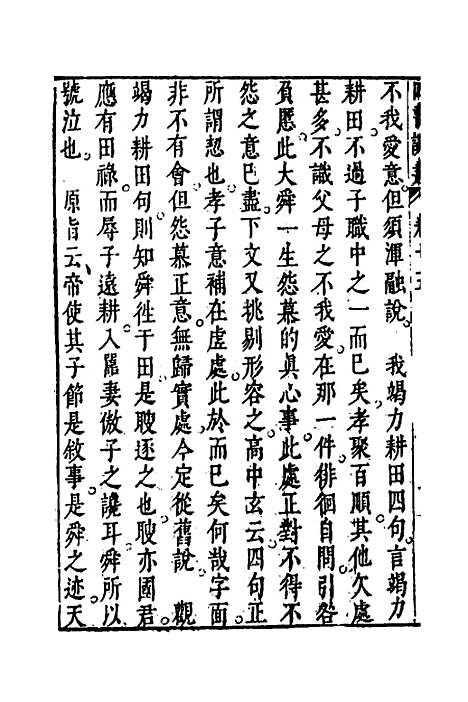 不我愛意但須渾融說　我竭力耕田四句言竭力
耕田不過子職中之一而已矣孝聚百順其他欠處
甚多不識父母之不我愛在那一件徘徊自問引咎
負慝此大舜一生怨慕的眞心事此處正對不得不
怨之意已盡下文又挑剔形容之高中玄云四句正
所謂恝也孝子意補在虛處此於而已矣何哉字面
非不有會但怨慕正意無歸實處今定從舊說　觀
竭力耕田句則知舜徃于田是瞍逐之也瞍亦國君
應有田祿而辱子遠耕入嚚妻傲子之讒耳舜所以
號泣也　原旨云帝使其子節是敘事是舜之迹天